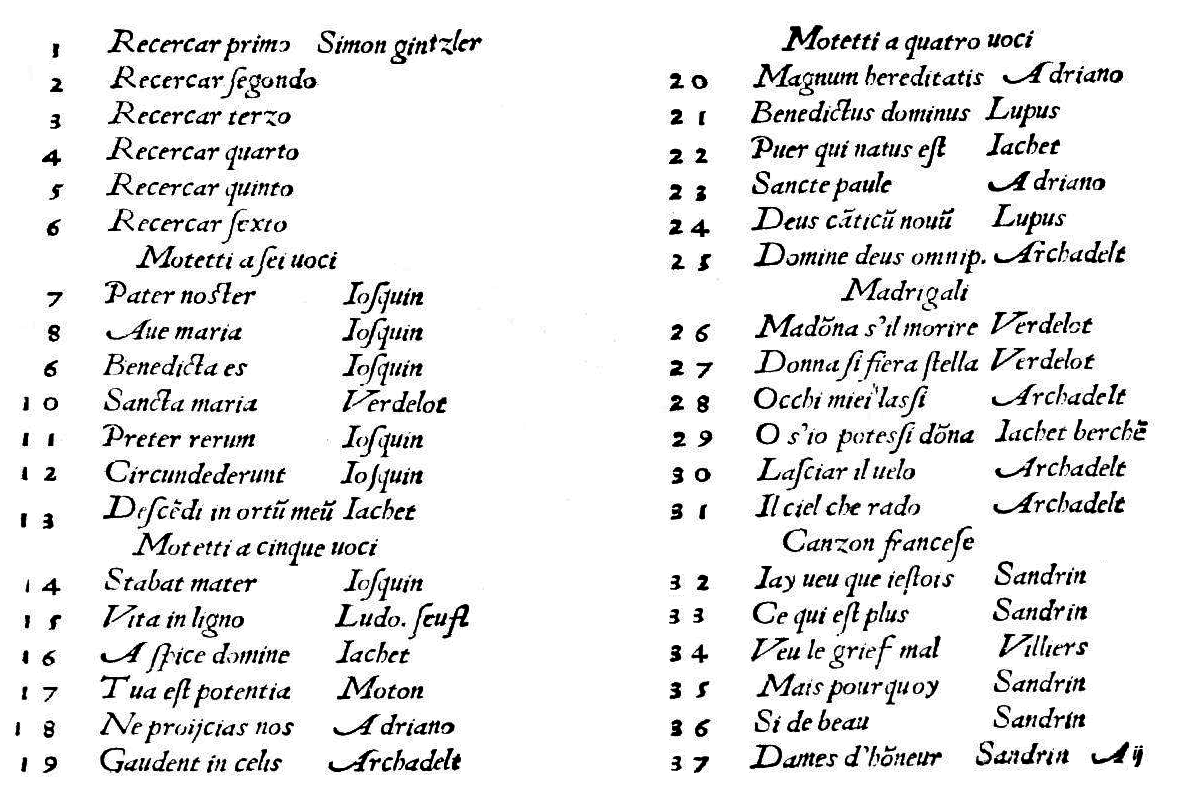 1 Recercar primo Simon gintzler
2 Recercar ſegondo
3 Recercar terzo
4 Recercar quarto
5 Recercar quinto
6 Recercar ſexto
Motetti a ſei uoci
7 Pater noſter Ioſquin
8 Aue maria Ioſquin
6 Benedicta es Ioſquin
10 Sancta maria Verdelot
11 Preter rerum Ioſquin
12 Circundederunt Ioſquin
13 Deſcēdi in ortū meū Iachet
Motetti a cinque uoci
14 Stabat mater Ioſquin
15 Vita in ligno Ludo. ſeufl
16 Aſpice domine Iachet
17 Tua eſt potentia Moton
18 Ne proijcias nos Adriano
19 Gaudent in celis Archadelt
Motetti a quatro uoci
20 Magnum hereditatis Adriano
21 Benedictus dominus Lupus
22 Puer qui natus eſt Iachet
23 Sancte paule Adriano
24 Deus cāticū nouū Lupus
25 Domine deus omnip. Archadelt
Madrigali
26 Madōna s'il morire Verdelot
27 Donna ſi fiera ſtella Verdelot
28 Occhi miei laſſi Archadelt
29 O s'io poteſſi dōna Iachet berchē
30 Laſciar il uelo Archadelt
31 Il ciel che rado Archadelt
Canzon franceſe
32 Iay ueu que ieſtois Sandrin
33 Ce qui eſt plus Sandrin
34 Veu le grief mal Villiers
35 Mais pourquoy Sandrin
36 Si de beau Sandrin
37 Dames d'hōneur Sandrin A ij